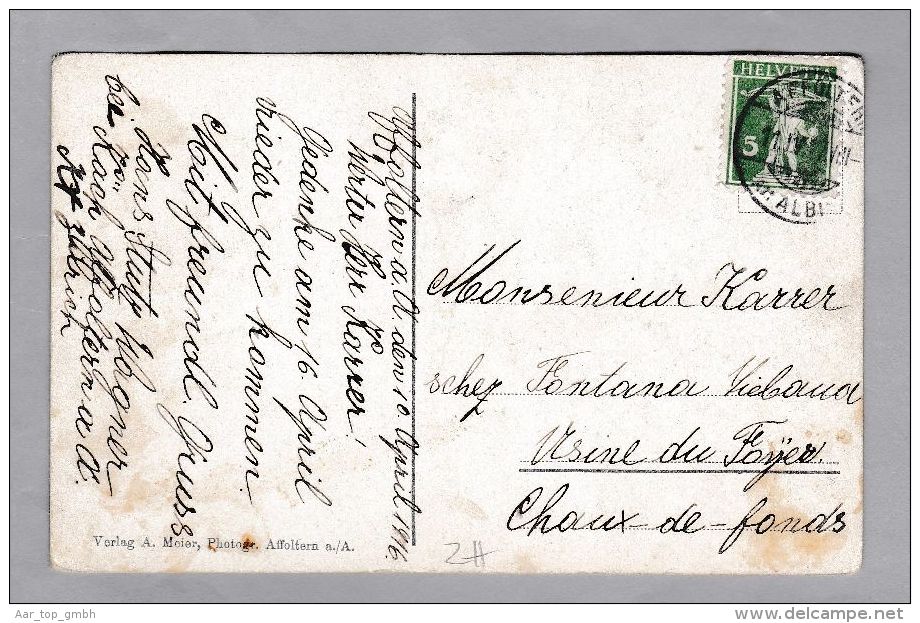 Affoltern a. A. den 10 April 1916.
Werter Herr Karrer!
Gedenke am 16. April
wieder zu kommen.
Mit freundl. Gruss
Hans Stutz Wagner
bei
Affoltern a. A.
Kt. Zürich
HELVETIA
5
ALBI
Monsenieur Karrer
schez Fontana Viebaud
Usine du Foÿer.
Chaux-de-fonds
Verlag A. Meier, Photogr. Affoltern a./A.
ZH
Aar_top_gmbh
delcampe.net